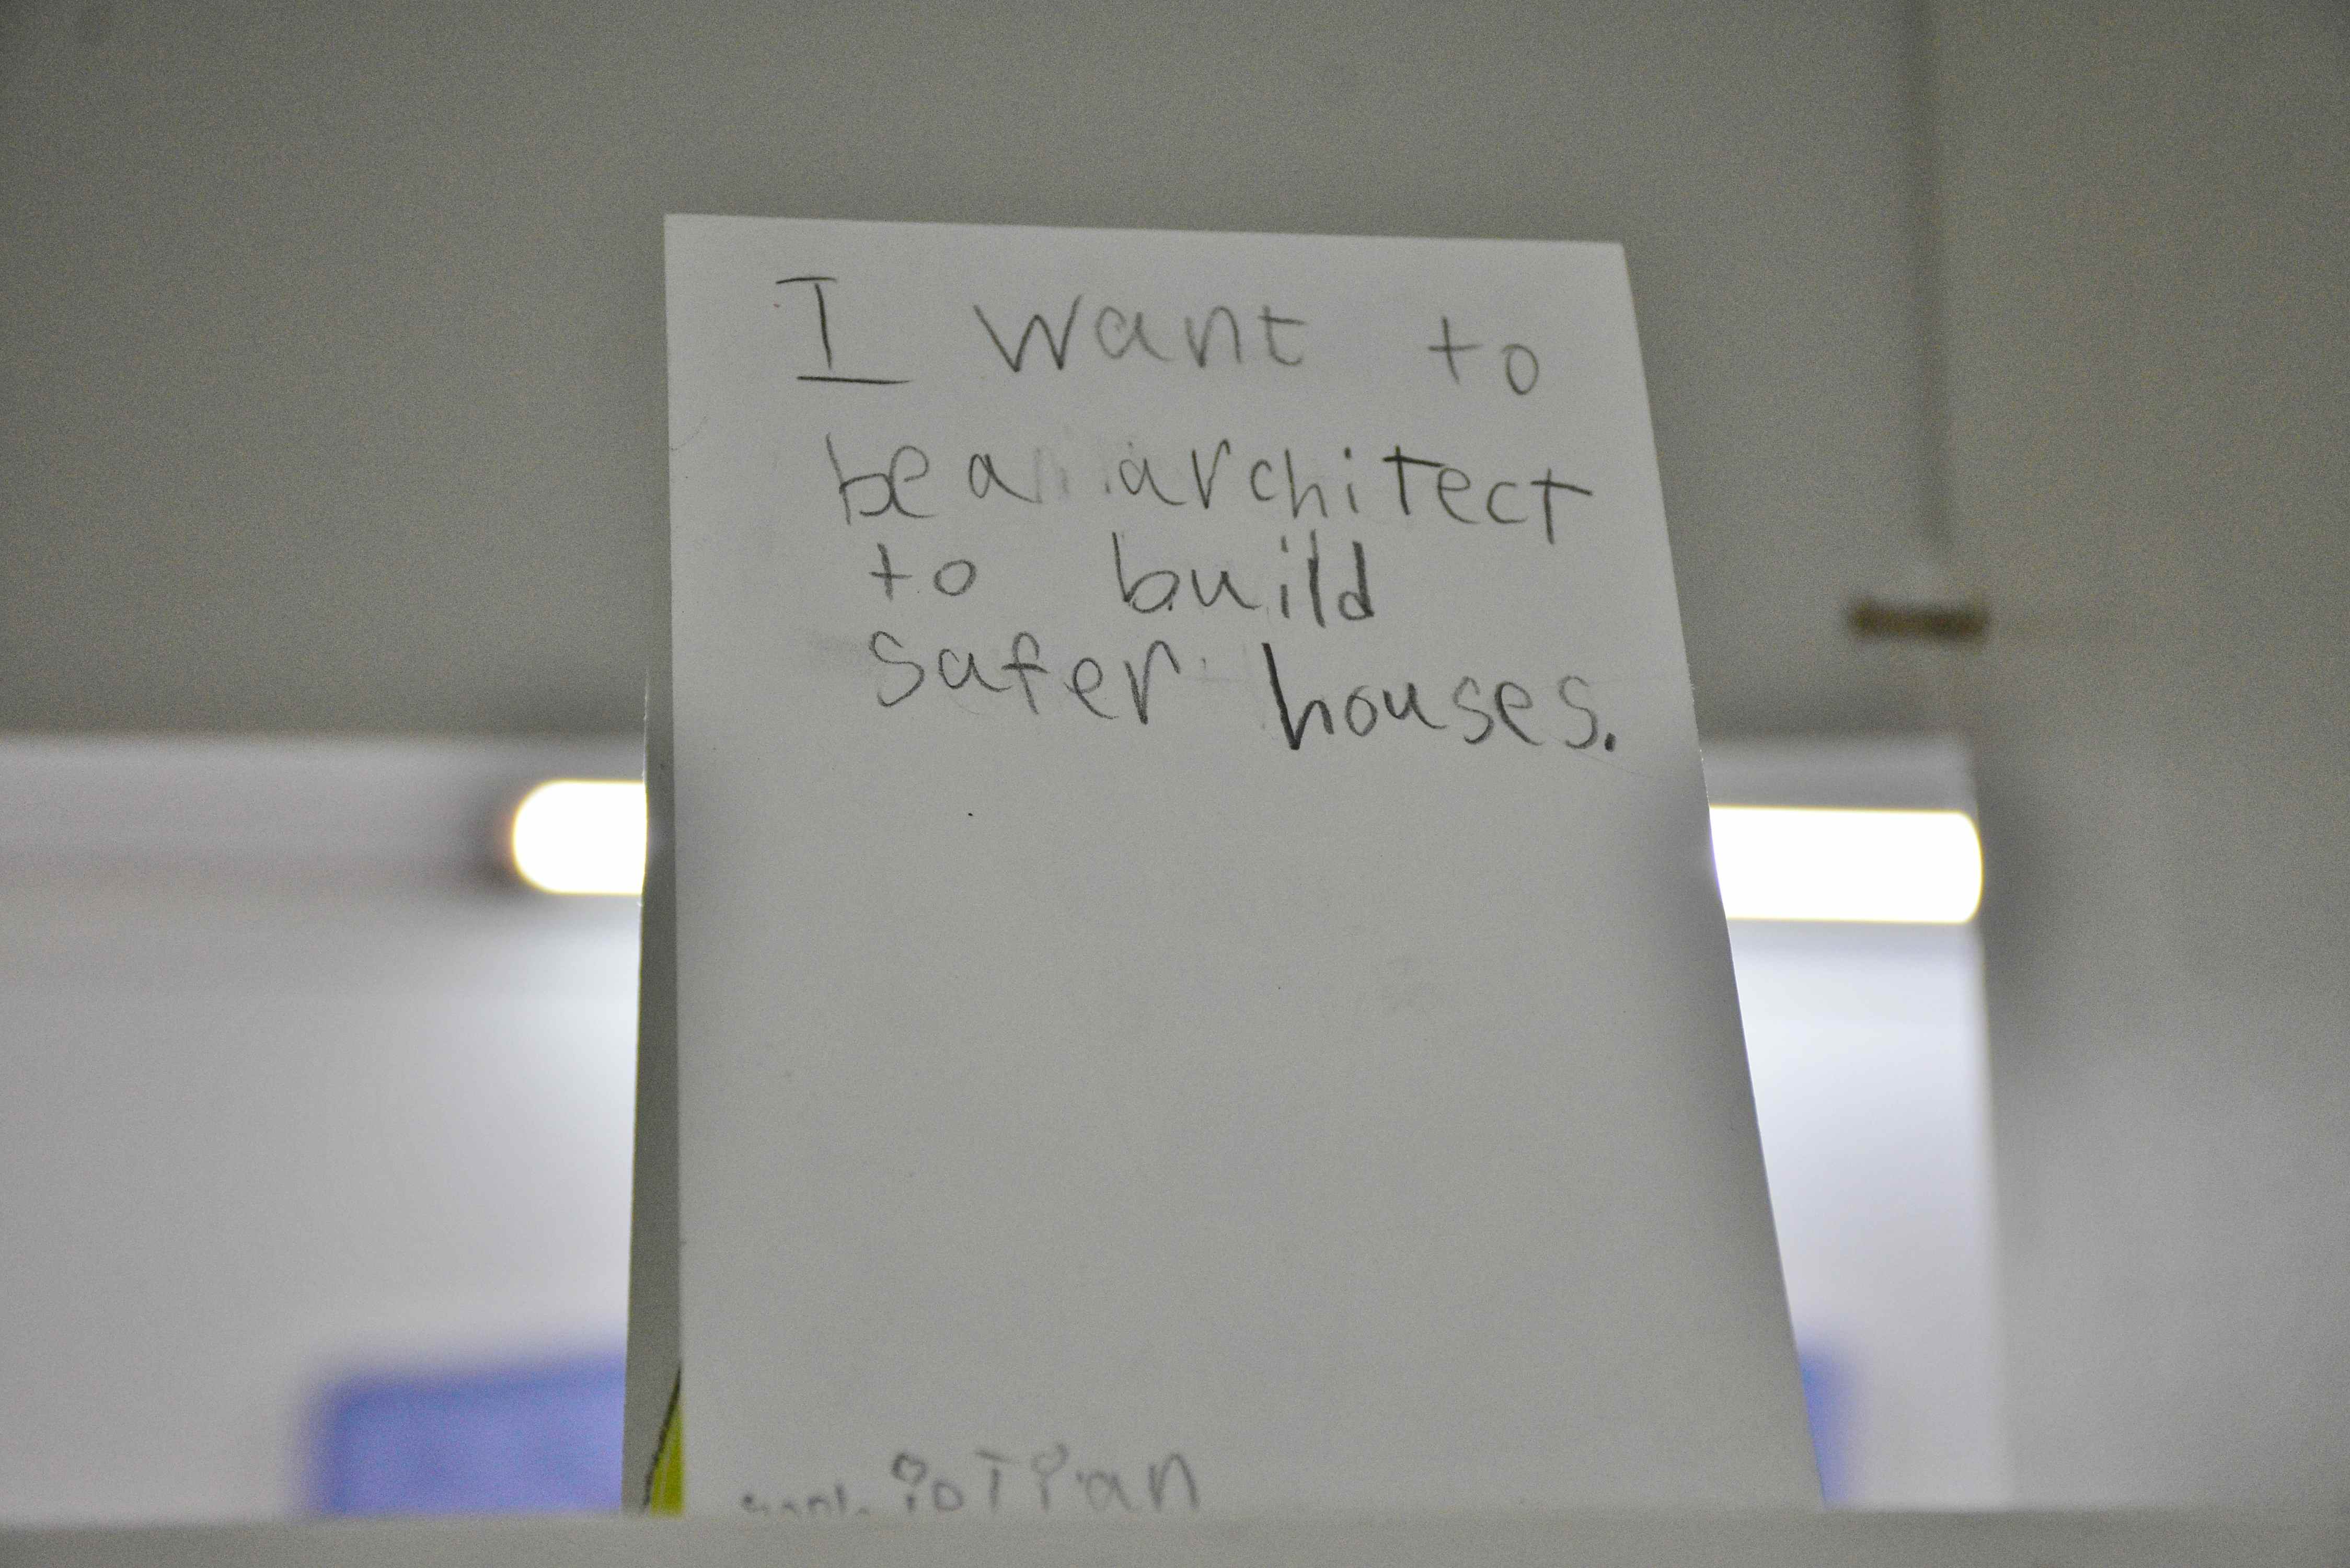 I want to
be a architect
to build
safer houses.